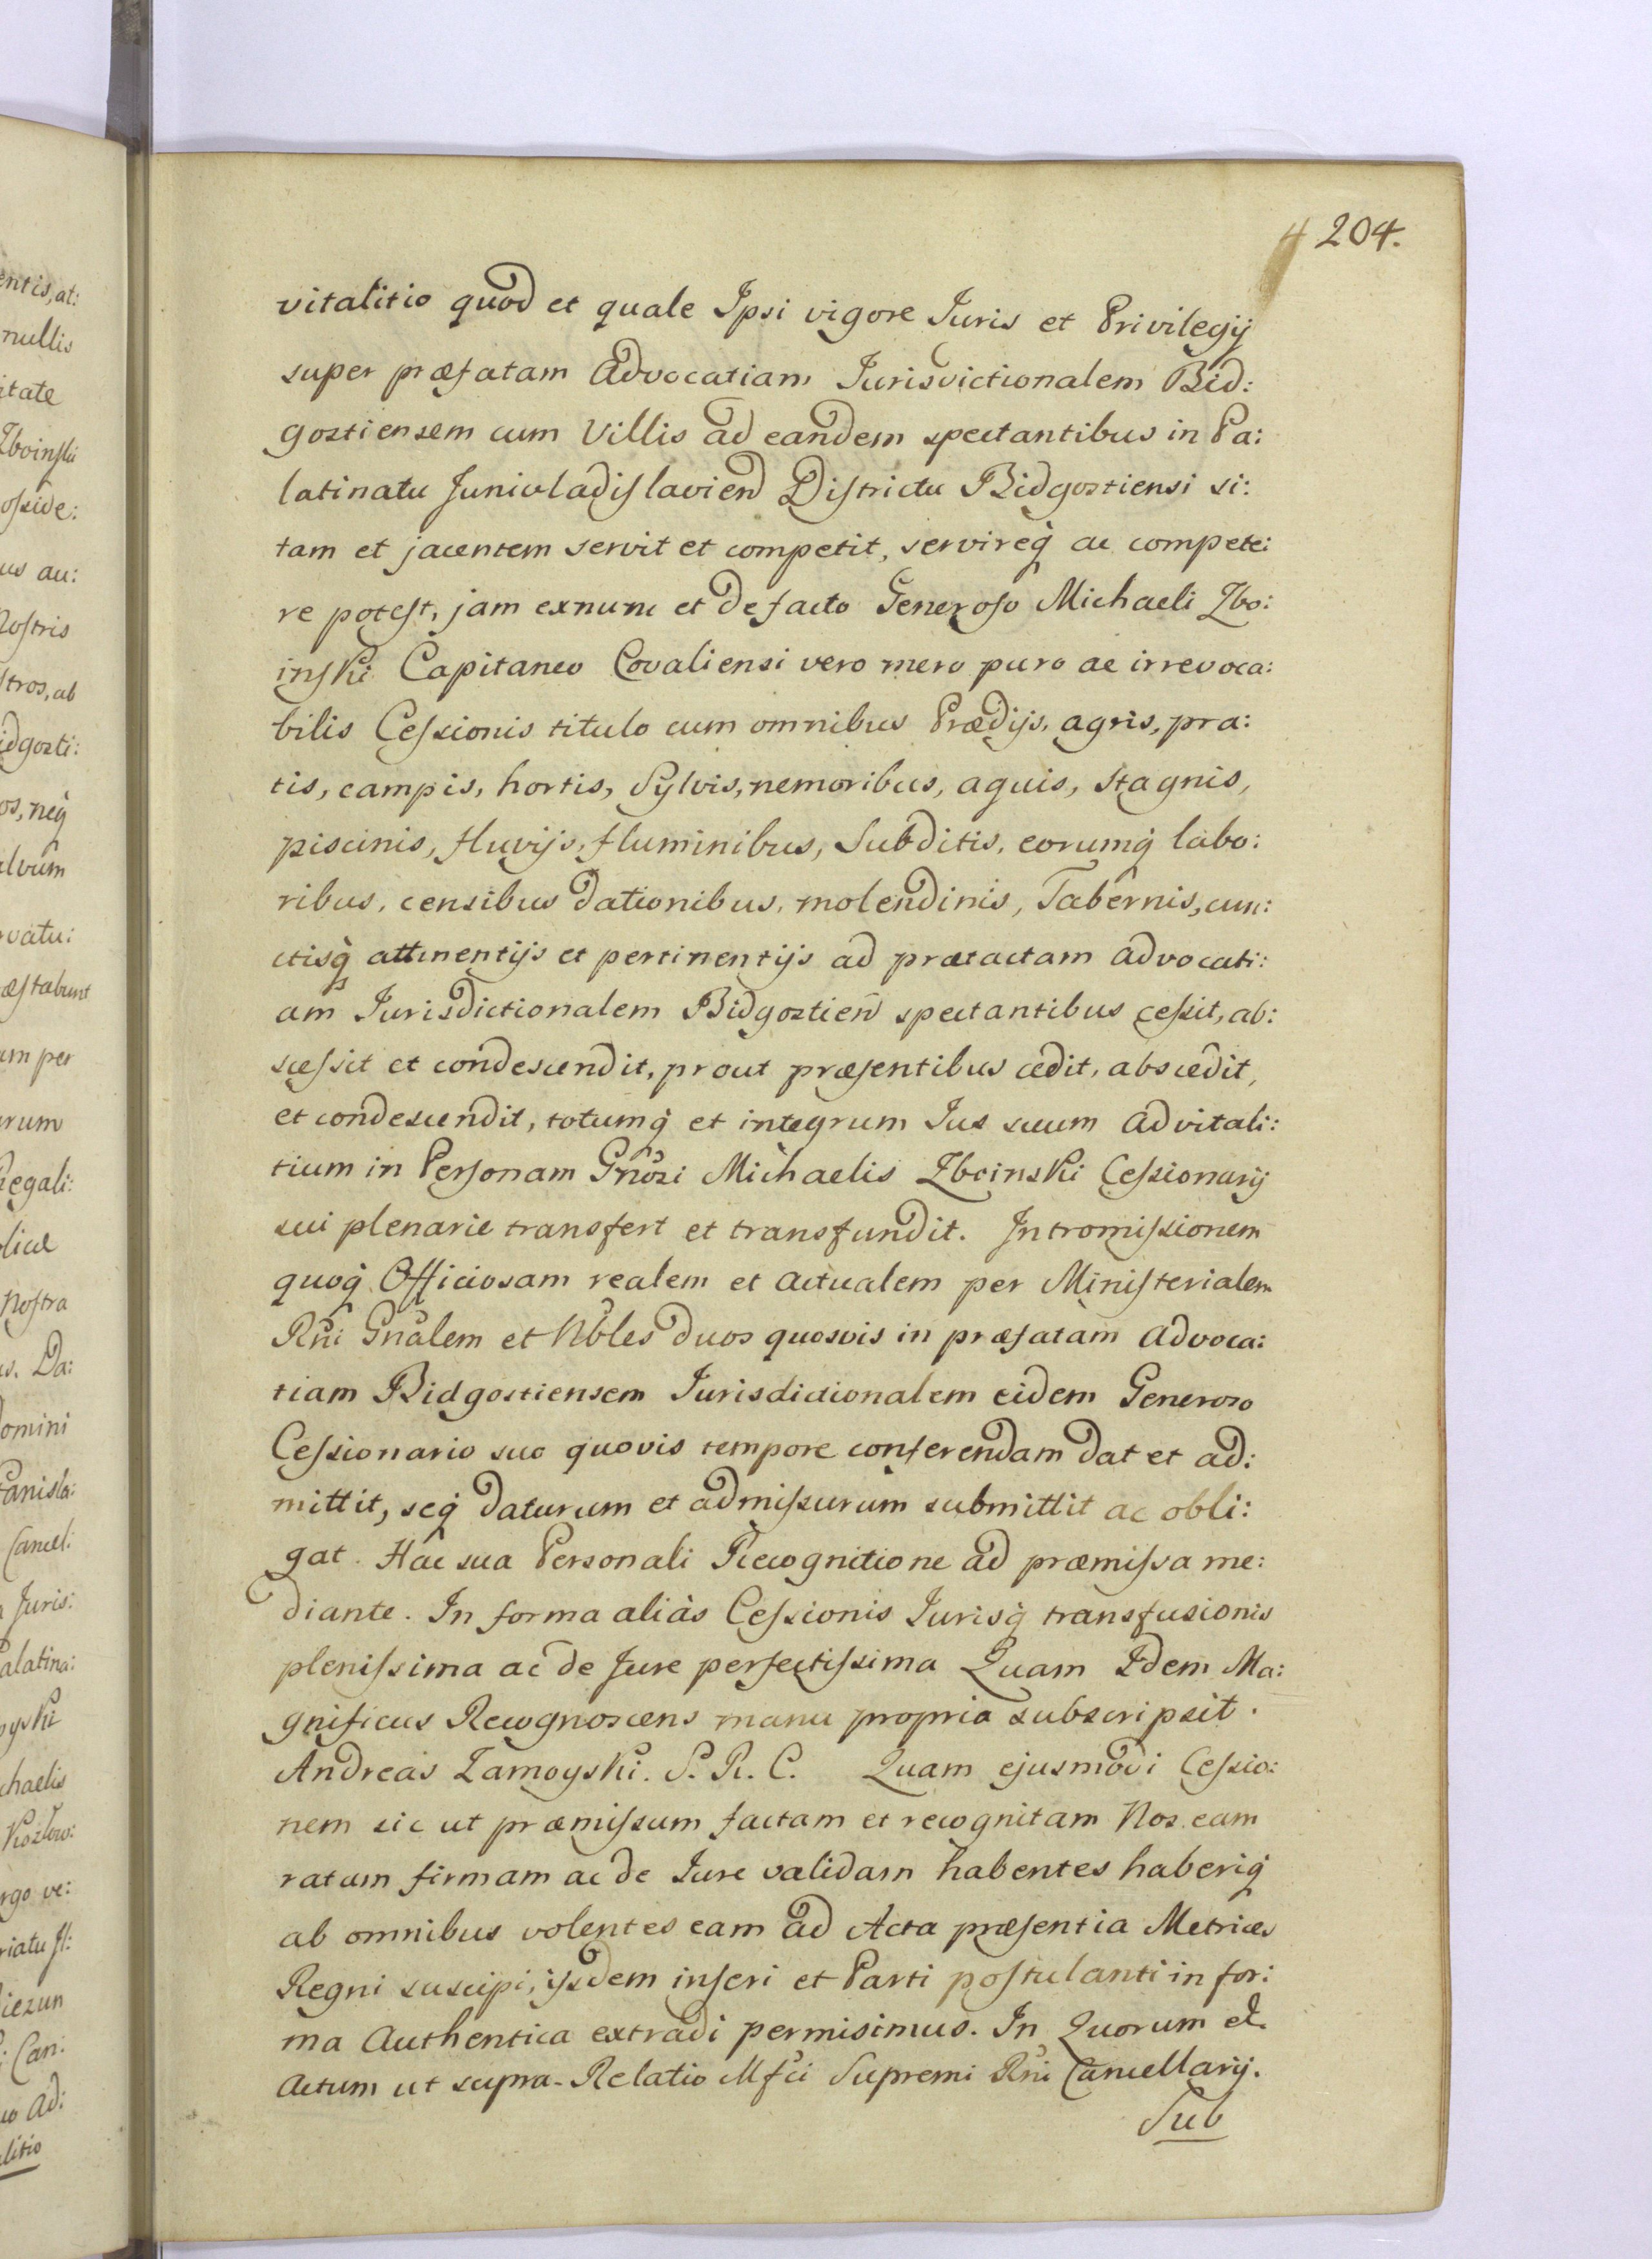 204.
vitalitio quod et quale Ipsi vigore Iuris et Privilegij
super præfatam Advocatiam Iurisdictionalem Bid:
gostiensem cum Villis ad eandem spectantibus in Pa:
latinatu Junivladislavien Districtu Bidgostiensi si:
tam et jacentem servit et competit, servireq́ ac compete:
re potest, jam exnunc et de facto Generoso Michaeli Zbo:
inski Capitaneo Covaliensi vero mero puro ac irrevoca:
bilis Cessionis titulo cum omnibus Prædijs, agris, pra:
tis, campis, hortis, Sylvis, nemoribus, aquis, stagnis,
piscinis, fluvijs, fluminibus, Subditis, eorumq́ labo:
ribus, censibus dationibus, molendinis, Tabernis, cun:
ctisq́ attinentijs et pertinentijs ad prætactam advocati:
am Iurisdictionalem Bidgostien̄ spectantibus cessit, ab:
scessit et condescendit, prout præsentibus cedit, abscedit,
et condescendit, totumq́ et integrum Ius suum advitali:
tium in Personam Gnosi Michaelis Zboinski Cessionarij
sui plenarie transfert et transfundit. Intromissionem
quoq́ Officiosam realem et actualem per Ministerialem
Rni Gnalem et Nbles duos quosvis in præfatam advoca:
tiam Bidgostiensem Iurisdictionalem eidem Generoso
Cessionario suo quovis tempore conferendam dat et ad:
mittit, seq́ daturum et admissurum submittit ac obli:
gat. Hac sua Personali Recognitione ad præmissa me:
diante. In forma aliàs Cessionis Iurisq́ transfusionis
plenissima ac de Jure perfectissima Quam Idem Ma:
gnificus Recognoscens manu propria subscripsit.
Andreas Zamoyski. S. R. C. Quam ejusmodi Cessio:
nem sic ut præmissum factam et recognitam Nos eam
ratam firmam ac de Iure validam habentes haberiq́
ab omnibus volentes eam ad Acta præsentia Metrices
Regni suscipi, ijsdem inseri et Parti postulanti in for:
ma Authentica extradi permisimus. In Quorum et
Actum ut supra - Relatio Mfci Supremi Rni Cancellarij.
Sub